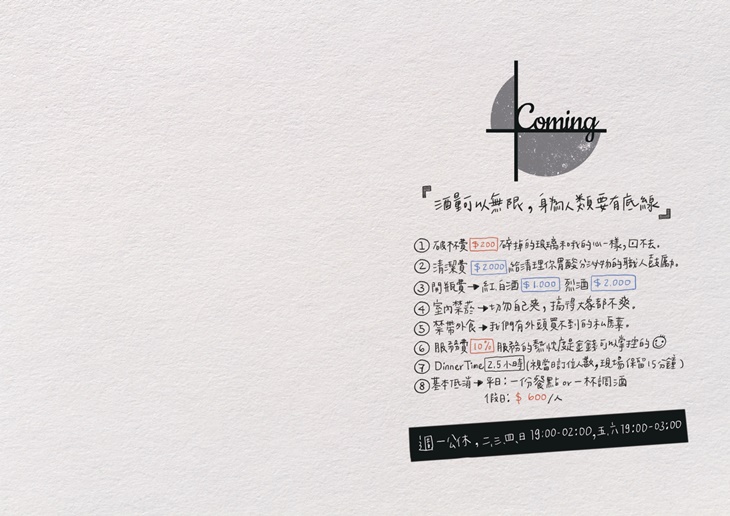 Coming
『酒量可以無限，身為人類要有底線』
① 破杯費 $200 碎掉的玻璃和我的心一樣，回不去。
② 清潔費 $2000 給清理你胃酸分泌物的職人鼓勵。
③ 開瓶費→紅白酒 $1.000 烈酒 $2.000
④ 室內禁菸→切勿自己爽，搞得大家都不爽。
⑤ 禁帶外食→我們有外頭買不到的私房菜。
⑥ 服務費 10% 服務的熱忱度是金錢可以掌控的
⑦ Dinner Time 2.5小時 (視當日訂位人數，現場保留15分鐘)
⑧ 基本低消→平日：一份餐點 or 一杯調酒
假日：$ 600/人
週一公休，二.三.四.日 19:00-02:00,五.六 19:00-03:00